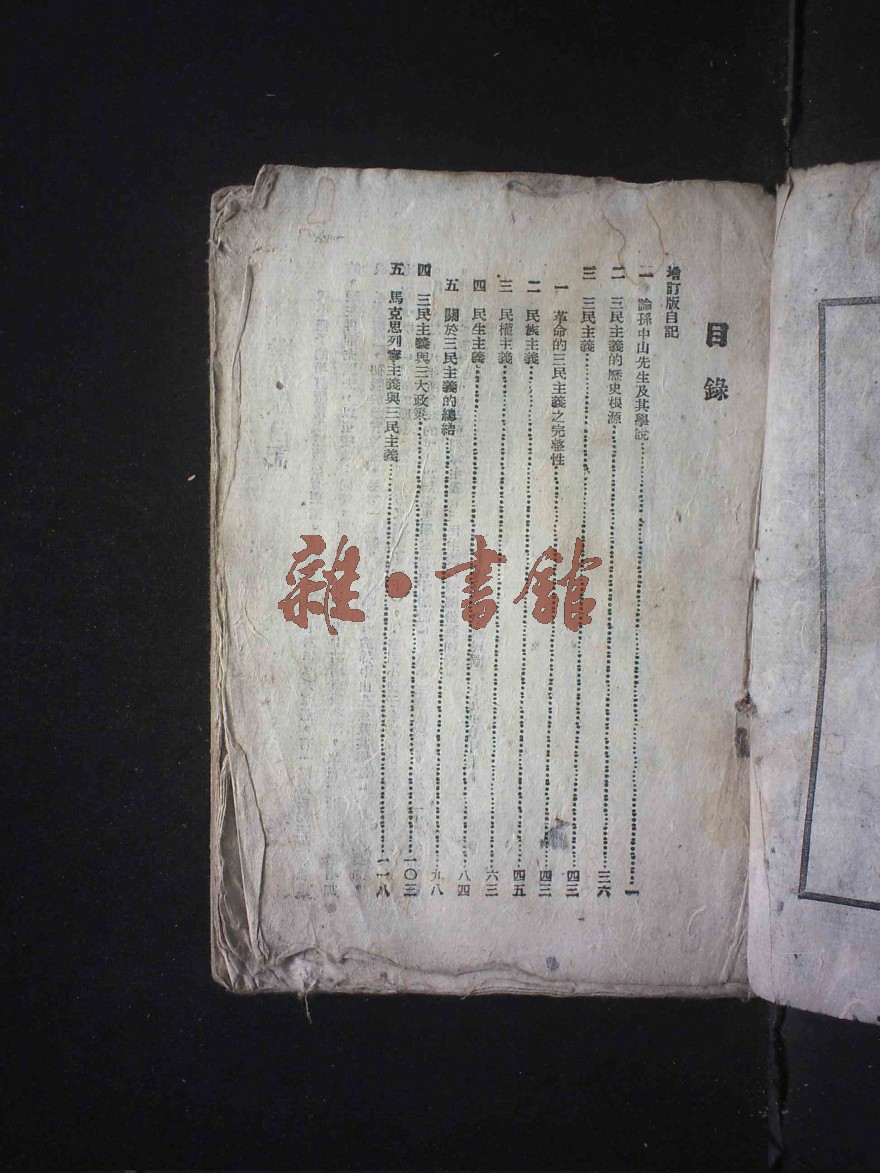 目錄
增訂版自記
一 論孫中山先生及其學說……一
二 三民主義的歷史根源……三六
三 三民主義……四三
一 革命的三民主義之完整性……四三
二 民族主義……四五
三 民權主義……六三
四 民生主義……八四
五 關於三民主義的總結……九八
四 三民主義與三大政策……一〇三
五 馬克思列寧主義與三民主義……一一八
雜·書館